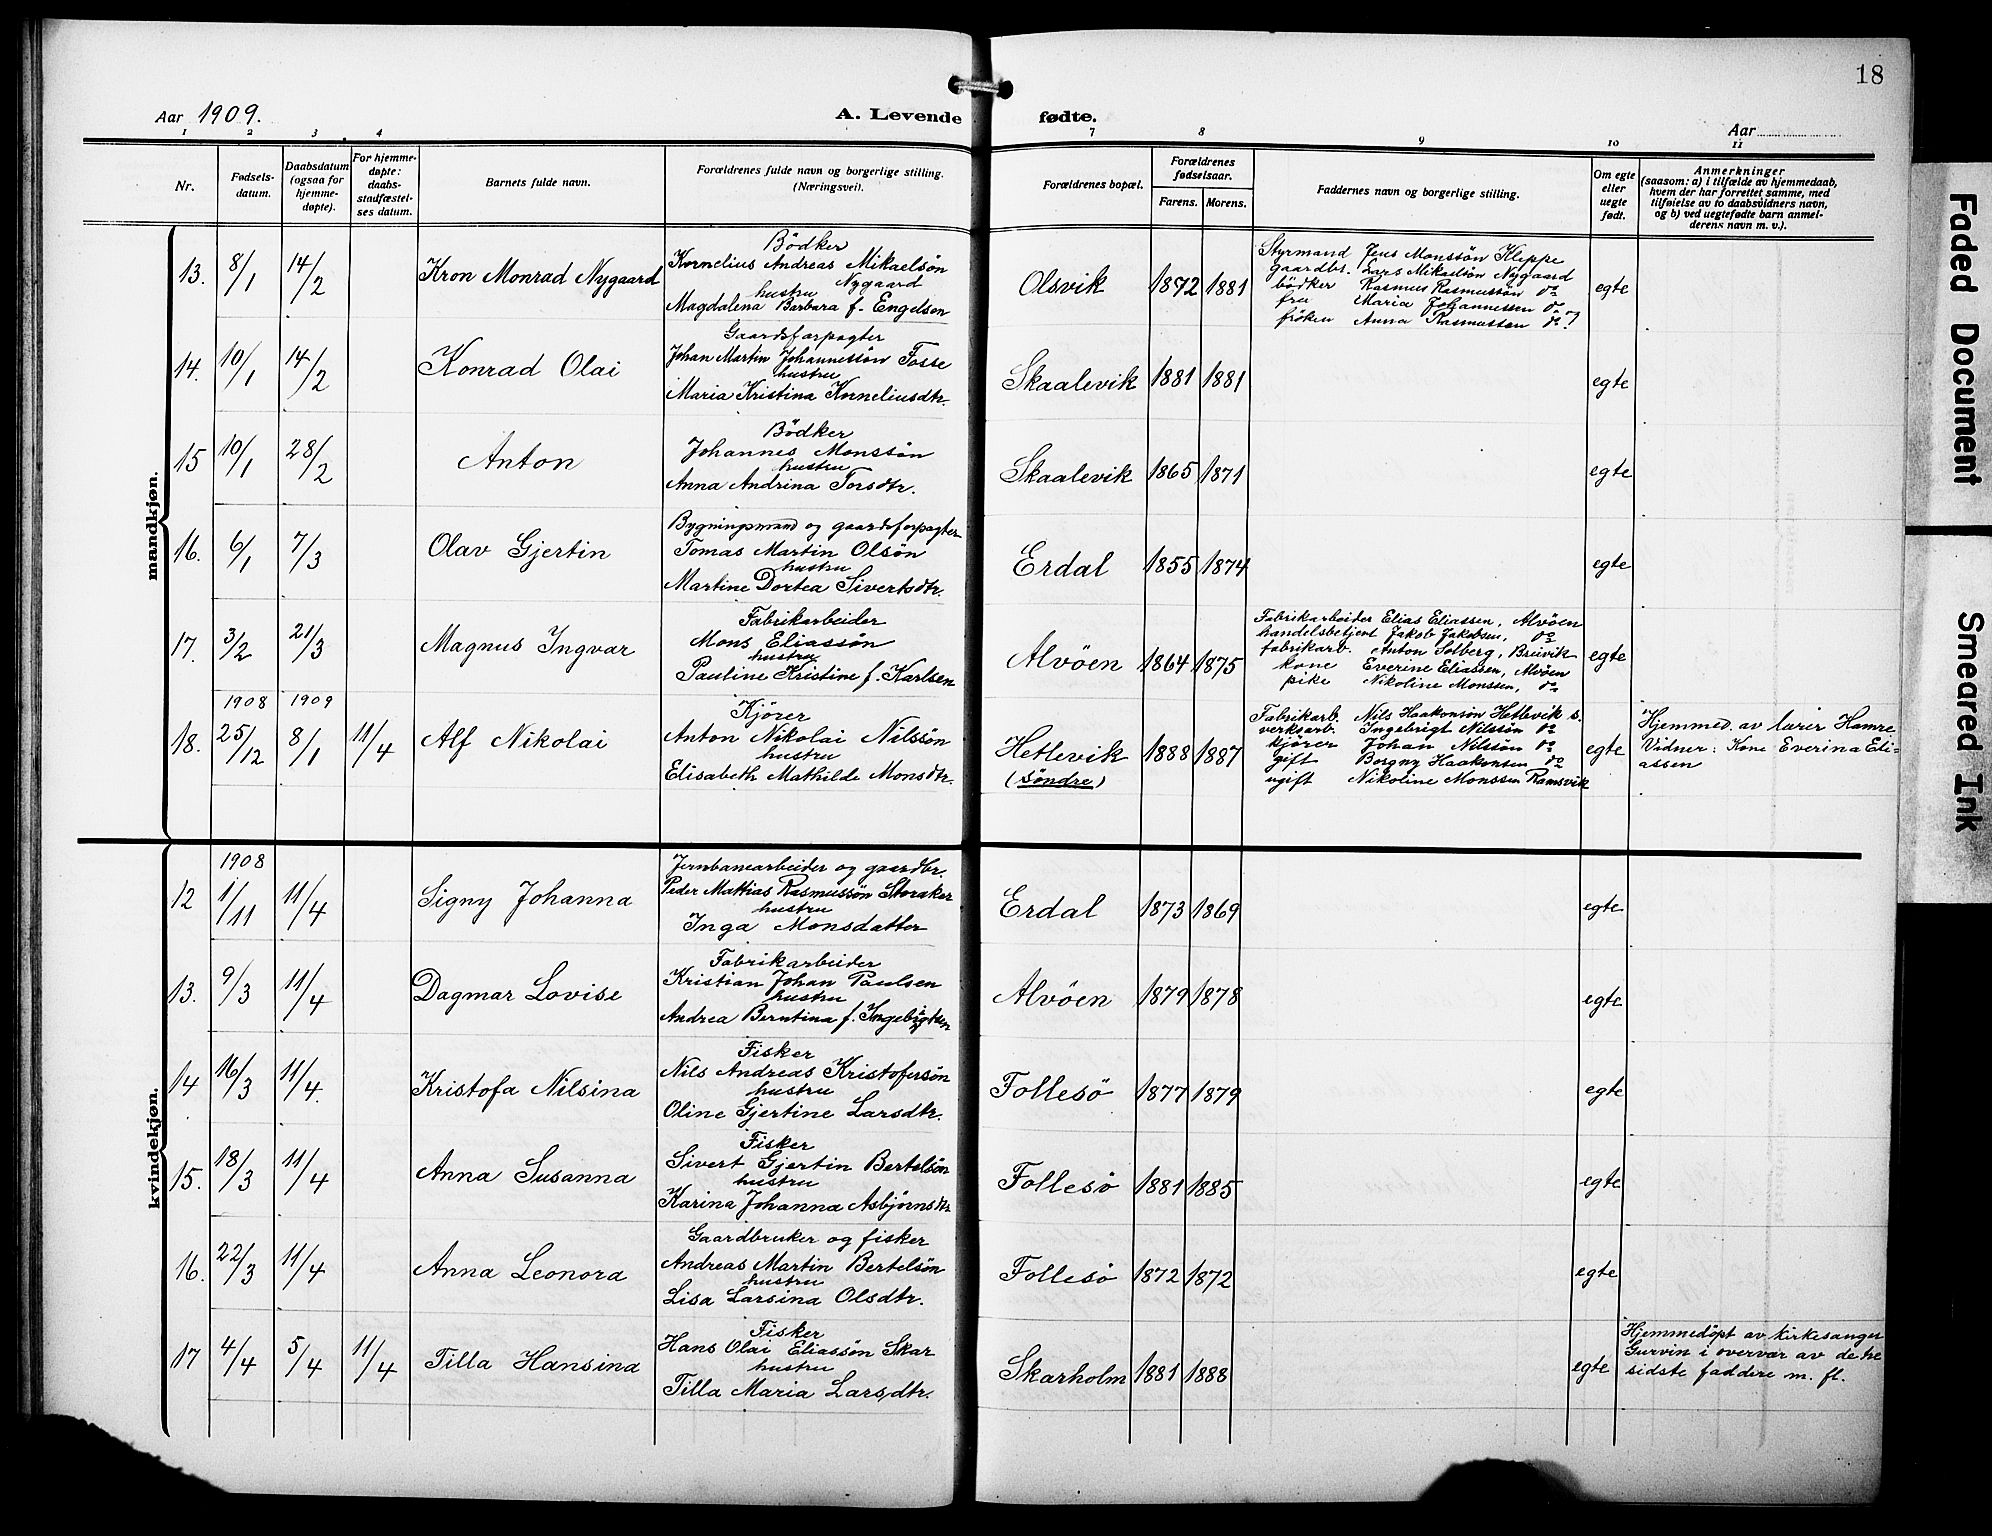 18
Aar 1909.
A. Levende fødte.
Aar
1 2 3 4 7 8 9 10 11
Nr.
Fødsels-
datum.
Daabsdatum
(ogsaa for
hjemme-
døpte).
For hjemme-
døpte:
daabs-
stadfæstel-
ses datum.
Barnets fulde navn.
Forældrenes fulde navn og borgerlige stilling.
(Næringsvei).
Forældrenes bopæl.
Forældrenes
fødselsaar.
Farens. Morens.
Faddernes navn og borgerlige stilling.
Om egte
eller
uegte
født.
Anmerkninger
(saasom: a) i tilfælde av hjemmedaab,
hvem der har forrettet samme, med
tilføielse av to daabsvidners navn,
og b) ved uegtefødte barn anmel-
derens navn m. v.).
mandkjøn.
13. 8/1 14/2 Kron Monrad Nygaard
Bödker
Kornelius Andreas Mikaelsön
Nygaard
hustru
Magdalena Barbara f. Engelsen
Olsvik 1872 1881
Styrmand Jens Monssön Kleppe
gaardbr. Lars Mikaelsön Nygaard
bödker Rasmus Rasmussön do
fru Maria Johannessen do
fröken Anna Rasmussen do
egte
14. 10/1 14/2 Konrad Olai
Gaardsforpagter
Johan Martin Johannessön Fosse
hustru
Maria Kristina Korneliusdtr.
Skaalevik 1881 1881 egte
15 10/1 28/2 Anton
Bödker
Johannes Monssön
hustru
Anna Andrina Torsdtr.
Skaalevik 1865 1871 egte
16. 6/1 7/3 Olav Gjertin
Bygningsmand og gaardsforpagter
Tomas Martin Olsön
hustru
Martine Dortea Sivertsdtr.
Erdal 1855 1874 egte
17. 3/2 21/3 Magnus Ingvar
Fabrikarbeider
Mons Eliassön
hustru
Pauline Kristine f. Karlsen
Alvöen 1864 1875
Fabrikarbeider Elias Eliassen, Alvöen
handelsbetjent Jakob Jakobsen, do
fabrikarb. Anton Solberg, Breivik
kone Everine Eliassen, Alvöen
pike Nikoline Monssen, do
egte
1908 1909
18. 25/12 8/1 11/4 Alf Nikolai
Kjörer
Anton Nikolai Nilssön
hustru
Elisabeth Mathilde Monsdtr.
Hetlevik
(söndre)
1888 1887
Fabrikarb. Nils Haakonsön Hetlevik s.
verksarb. Ingebrigt Nilssön do
kjörer Johan Nilssön do
gift Borgny Haakonsen do
ugift Nikoline Monssen Ramsvik
egte
Hjemmed. av lærer Hamre
Vidner: Kone Everina Eli-
assen
kvindekjøn.
1908
12 1/11 11/4 Signy Johanna
Jernbanearbeider og gaardbr.
Peder Mathias Rasmussön Storaker
hustru
Inga Monsdatter
Erdal 1873 1869 egte
13. 9/3 11/4 Dagmar Lovise
Fabrikarbeider
Kristian Johan Paulsen
hustru
Andrea Berntina f. Ingebrigtsen
Alvöen 1879 1878 egte
14 16/3 11/4. Kristofa Nilsina
Fisker
Nils Andreas Kristofersön
hustru
Oline Gjertine Larsdtr.
Follesö 1877 1879 egte
15. 18/3 11/4 Anna Susanna
Fisker
Sivert Gjertin Bertelsön
hustru
Karina Johanna Asbjörnsdtr
Follesö 1881 1885 egte
16. 22/3 11/4 Anna Leonora
Gaardbruker og fisker
Andreas Martin Bertelsön
hustru
Lisa Larsina Olsdtr.
Follesö 1872 1872 egte
17 4/4 5/4 11/4 Tilla Hansina
Fisker
Hans Olai Eliassön Skar
hustru
Tilla Maria Larsdtr.
Skarholm 1881 1888 egte
Hjemmedöpt av kirkesanger
Gurvin i overvær av de tre
sidste faddere m. fl.
Faded Document
Smeared Ink